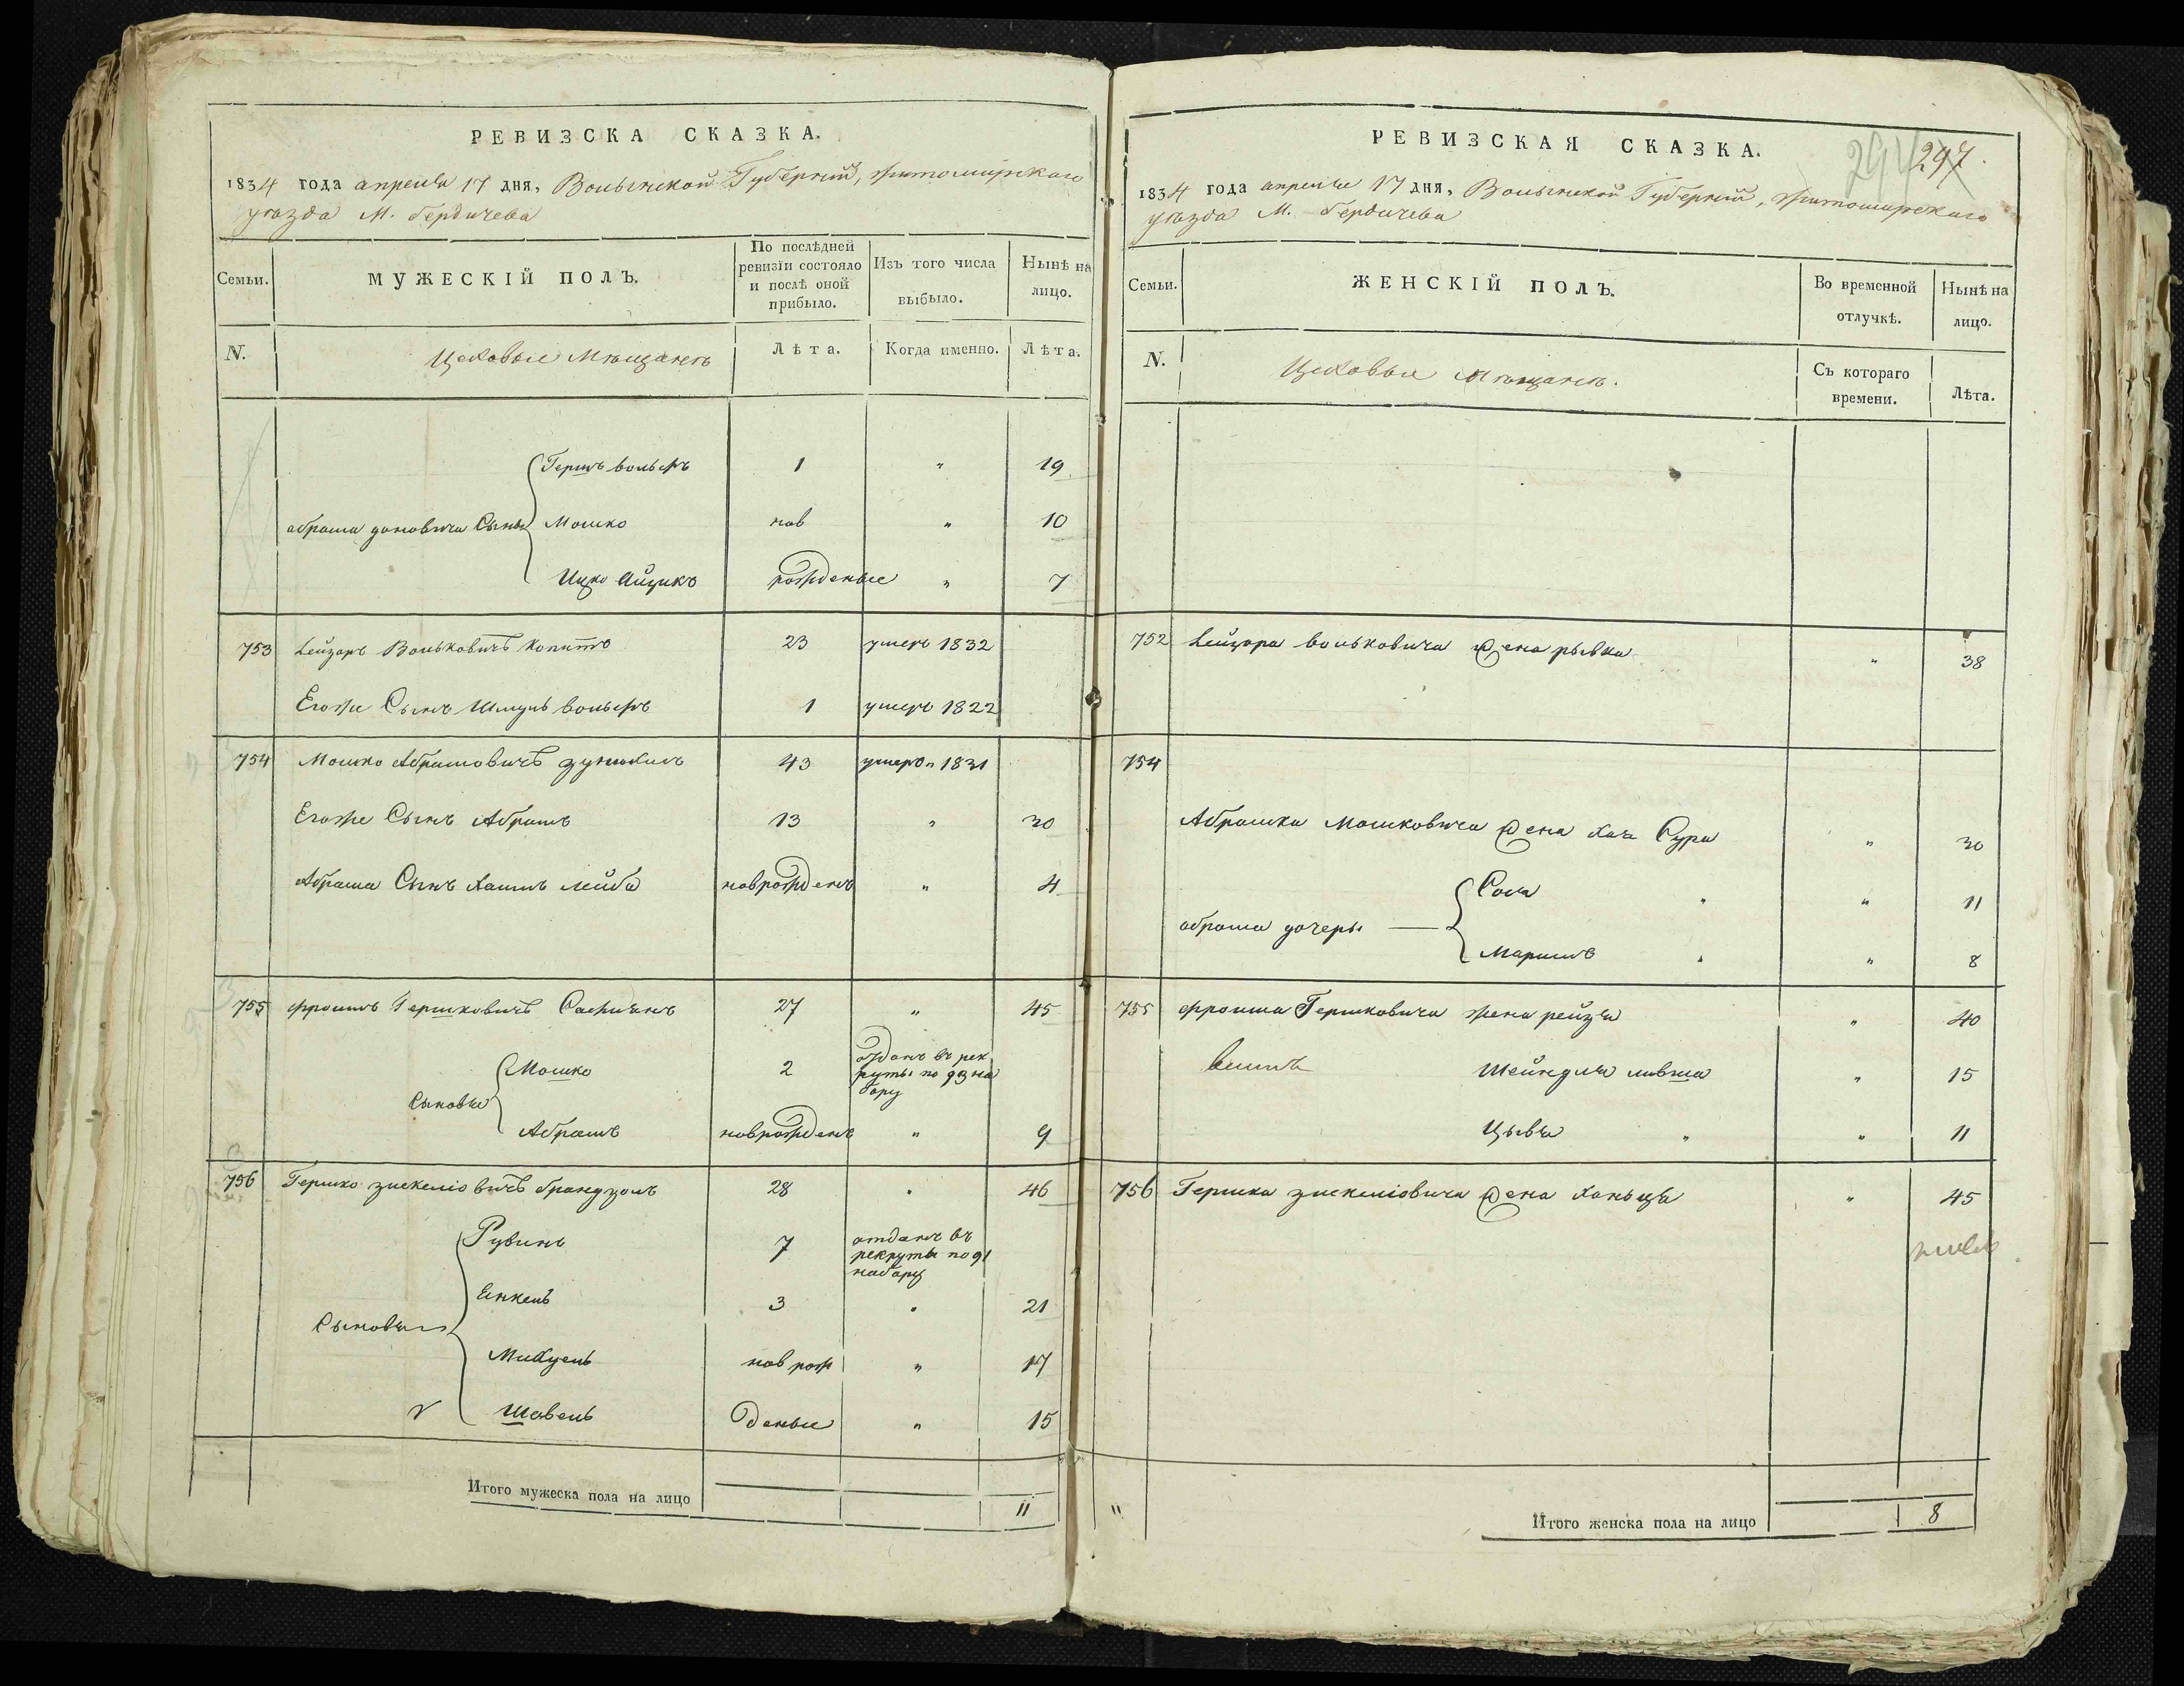 РЕВИЗСКА СКАЗКА.
1834 года апреля 17 дня, Волынской Губернїи, житомирскаго
уѣзда М. бердичева
Семьи.
МУЖЕСКІЙ ПОЛЪ.
По послѣдней
ревизіи состояло
и послѣ оной
прибыло.
Изъ того числа
выбыло.
Нынѣ на
лицо.
N.
Цеховые Мѣщане
Лѣта.
Когда именно.
Лѣта.
Гершъ вольфъ 1 " 19
абрама Сыны Мошко нов " 10
Ицко Айзикъ рожденые " 7
753 Лейзоръ Вольковичъ 23 умеръ 1832
Егоже Сынъ Шмуль вольфъ 1 умеръ 1822
754 Мошко Абрамовичъ 43 умеръ 1831
Егоже Сынъ Абрамъ 13 " 30
Абрама Сынъ Хаимъ лейба новрожденъ " 4
755 фроимъ Гершковичъ 27 " 45
Мошко 2
отданъ въ рек
руты по 93 на
бору
Сыновья
Абрамъ новрожденъ " 9
756 Гершко 28 " 46
Рувинъ 7
отданъ въ
рекруты по 91
набору
Енкель 3 " 21
Сыновья
нов рож " 17
деные " 15
Итого мужеска пола на лицо 11
РЕВИЗСКАЯ СКАЗКА.
297
1834 года апреля 17 дня, Волынской Губернїи, житомирскаго
уѣзда М. бердичева
Семьи.
ЖЕНСКІЙ ПОЛЪ.
Во временной
отлучкѣ.
Нынѣ на
лицо.
N.
Цеховые мѣщане.
Съ котораго
времени.
Лѣта.
752 Лейзора вольковича жена рывка " 38
754
Абрамка Мошковича жена хая Сура " 30
Сося " 11
абрама дочеры
Маримъ " 8
755 фроима Гершковича жена рейзя " 40
Шейндля " 15
Цывя " " 11
756 Гершка жена ханьця " 45
"
Итого женска пола на лицо 8